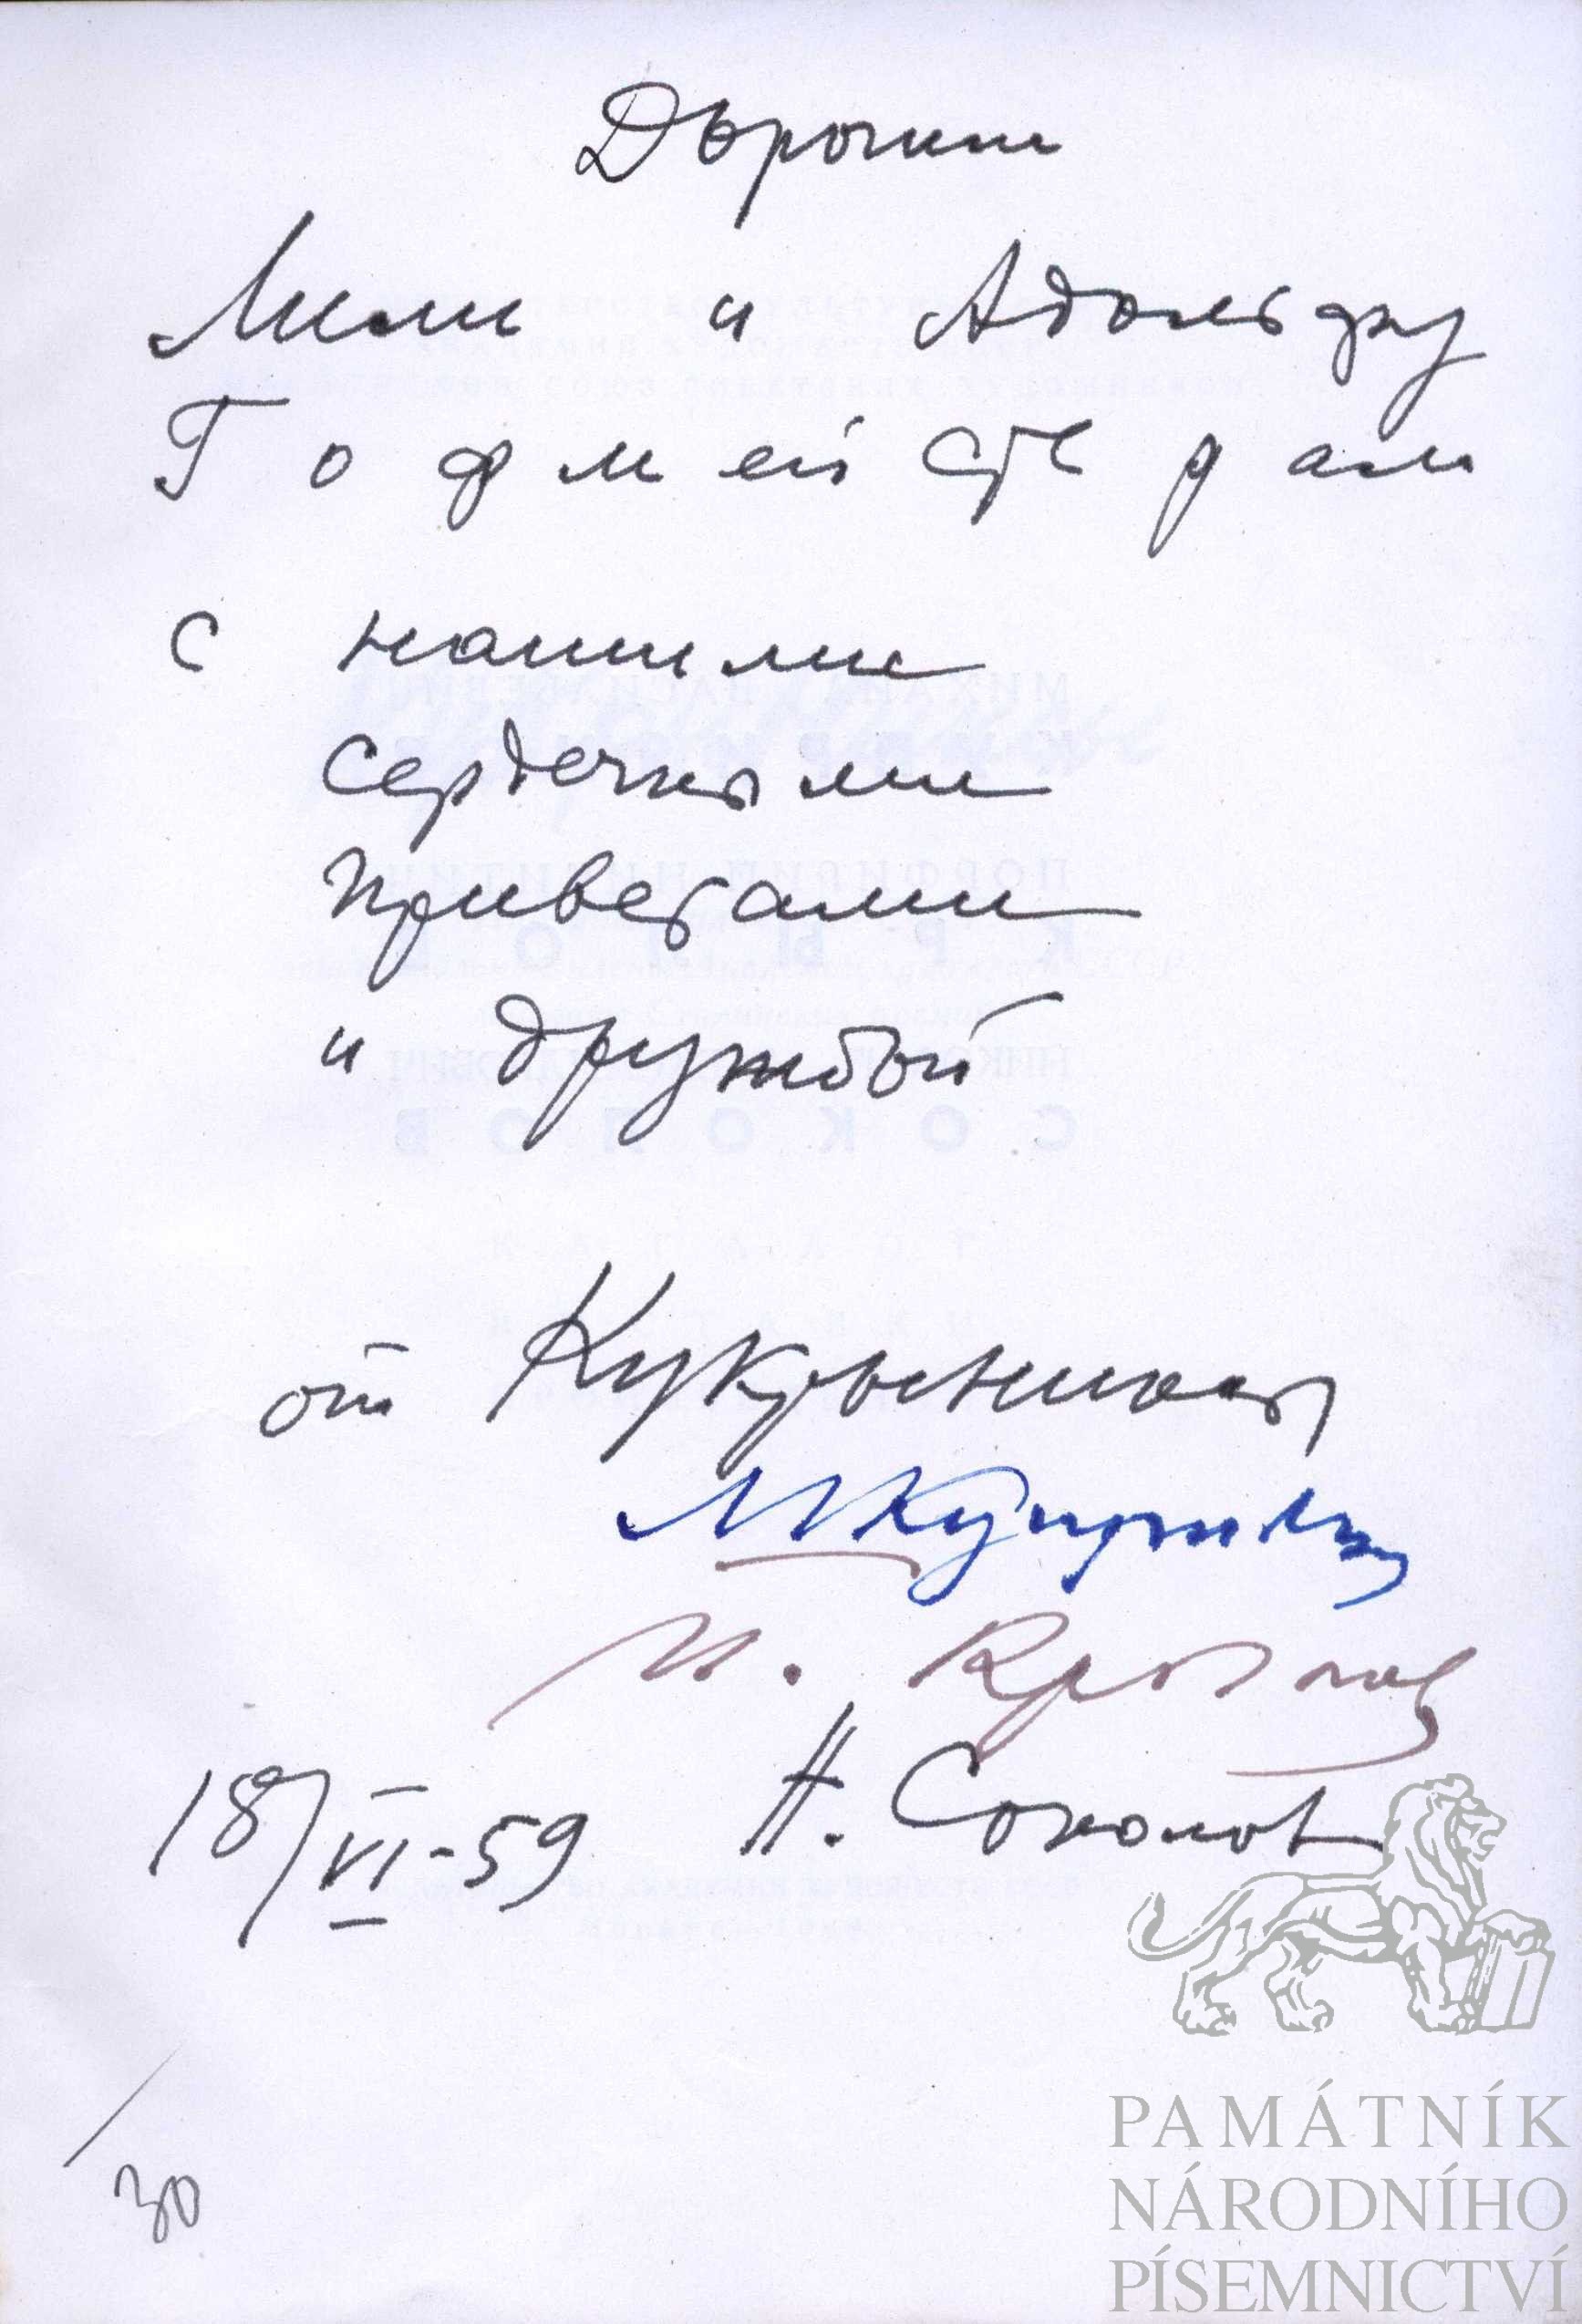 Дорогим
Мили и Адольфу
Гофмейстерам
с нашими
сердечными
приветами
и дружбой
от Кукрыниксы
М Куприянов
П. Крылов
Н. Соколов
18/VI-59
30
PAMÁTNÍK
NÁRODNÍHO
PÍSEMNICTVÍ